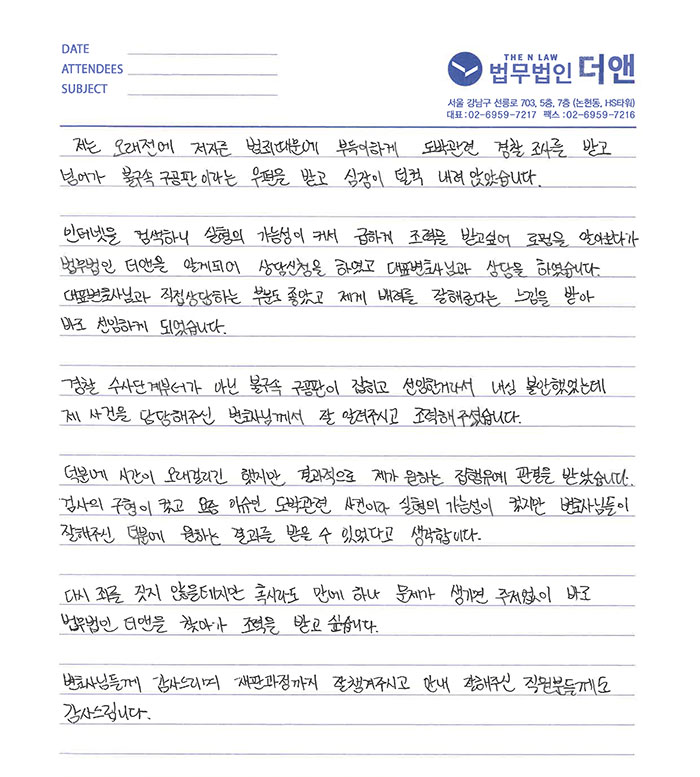 DATE
ATTENDEES
SUBJECT
THE N LAW
법무법인 더앤
서울 강남구 선릉로 703, 5층, 7층 (논현동, HS타워)
대표:02-6959-7217 팩스:02-6959-7216
저는 오래전에 저지른 범죄때문에 부득이하게 도박관련 경찰 조사를 받고
넘어가 불구속 구공판이라는 우편을 받고 심장이 덜컥 내려 앉았습니다.
인터넷을 검색하니 실형의 가능성이 커서 급하게 조력을 받고싶어 로펌을 알아보다가
법무법인 더앤을 알게되어 상담신청을 하였고 대표변호사님과 상담을 하였습니다.
대표변호사님과 직접상담하는 부분도 좋았고 제게 배려를 잘해준다는 느낌을 받아
바로 선임하게 되었습니다.
경찰 수사단계부터가 아닌 불구속 구공판이 잡히고 선임한게라서 내심 불안했었는데
제 사건을 담당해주신 변호사님께서 잘 알려주시고 조력해주셨습니다.
덕분에 시간이 오래걸리긴 했지만 결과적으로 제가 원하는 집행유예 판결을 받았습니다.
검사의 구형이 컸고 요즘 이슈인 도박관련 사건이라 실형의 가능성이 컸지만 변호사님들이
잘해주신 덕분에 원하는 결과를 받을 수 있었다고 생각합니다.
다시 죄를 짓지 않을테지만 혹시라도 만에 하나 문제가 생기면 주저없이 바로
법무법인 더앤을 찾아가 조력을 받고 싶습니다.
변호사님들께 감사드리며 재판과정까지 잘챙겨주시고 안내 잘해주신 직원분들께도
감사드립니다.